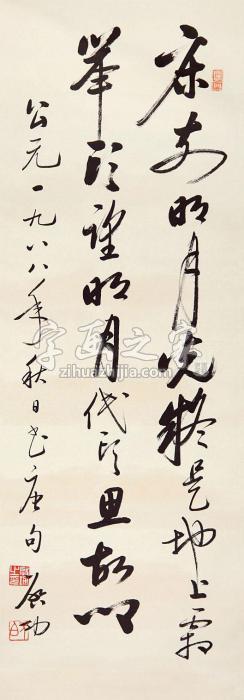 床前明月光疑是地上霜
举头望明月低头思故乡
公元一九八八年秋日书唐句 启功
字画之家
zihuazhijia.com